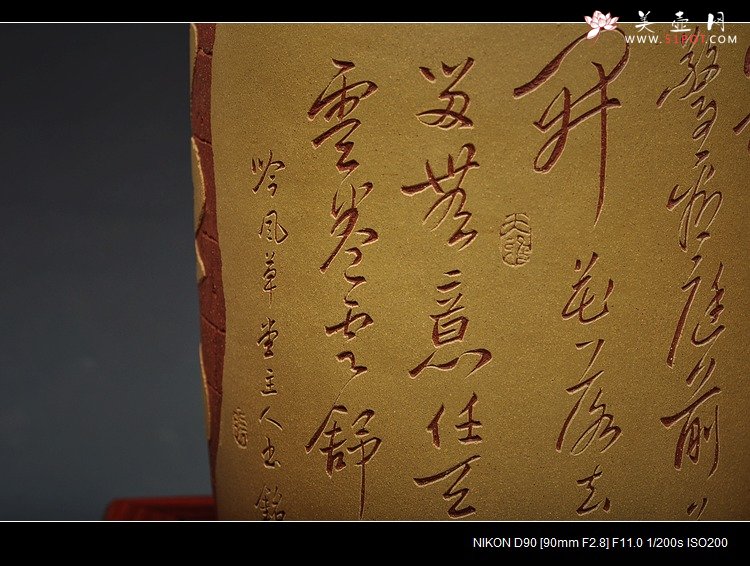 美壶网
WWW.51BOT.COM
驚看庭前
开花落去
留無意任天
雲卷雲舒
吟风草堂主人书銘
NIKON D90 [90mm F2.8] F11.0 1/200s ISO200